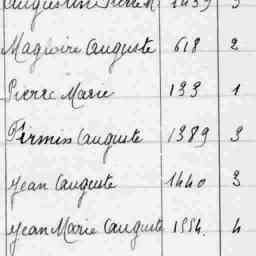 Augustin Pierre M. 1439 3
Magloire Auguste 618 2
Pierre Marie 133 1
Firmin Auguste 1389 3
Jean Auguste 1440 3
Jean Marie Auguste 1554. 4